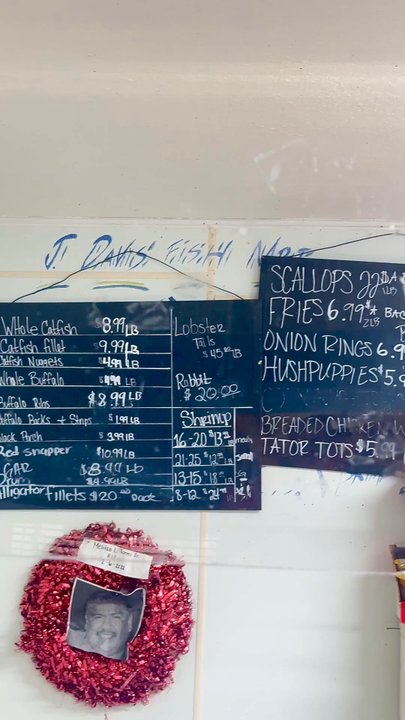 J. DAVIS' FISH
Whole Catfish 8.99 LB
Catfish fillet 9.99 LB
Catfish Nuggets 4.99 LB
Whole Buffalo 4.99 LB
Buffalo Ribs $8.99 LB
Buffalo Backs + Strips 1.99 LB
3.99 LB
Red snapper $10.99 LB
GAR $8.99 LB
Drum
Alligator fillets $20.00 Pack
Lobster
Tails
$45.00 LB
Rabbit
$20.00
Shrimp
16-20 $13
21-25 $12
13-15 $18
8-12 $24
SCALLOPS 22
1LB
FRIES 6.99
2LBS
ONION RINGS 6.9
HUSHPUPPIES $5.9
BREADED CHICKEN
TATOR TOTS $5.